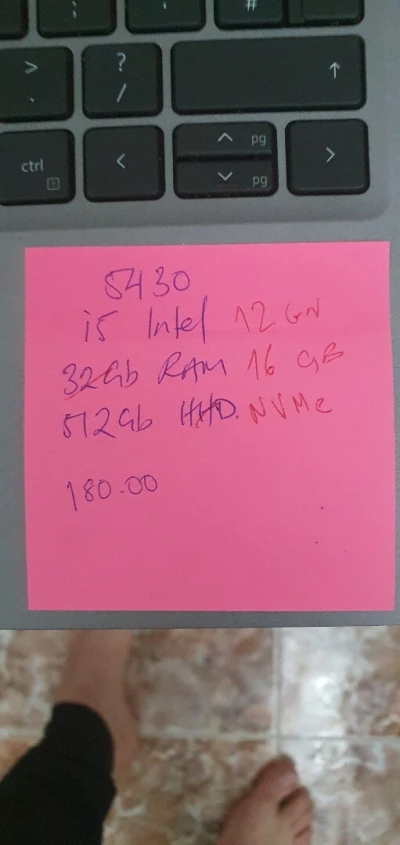 #
> ? ↑
. /
ctrl < ^ pg >
v pg
5430
i5 Intel 12 GN
32Gb RAM 16 GB
512Gb HHD. NVMe
180.00